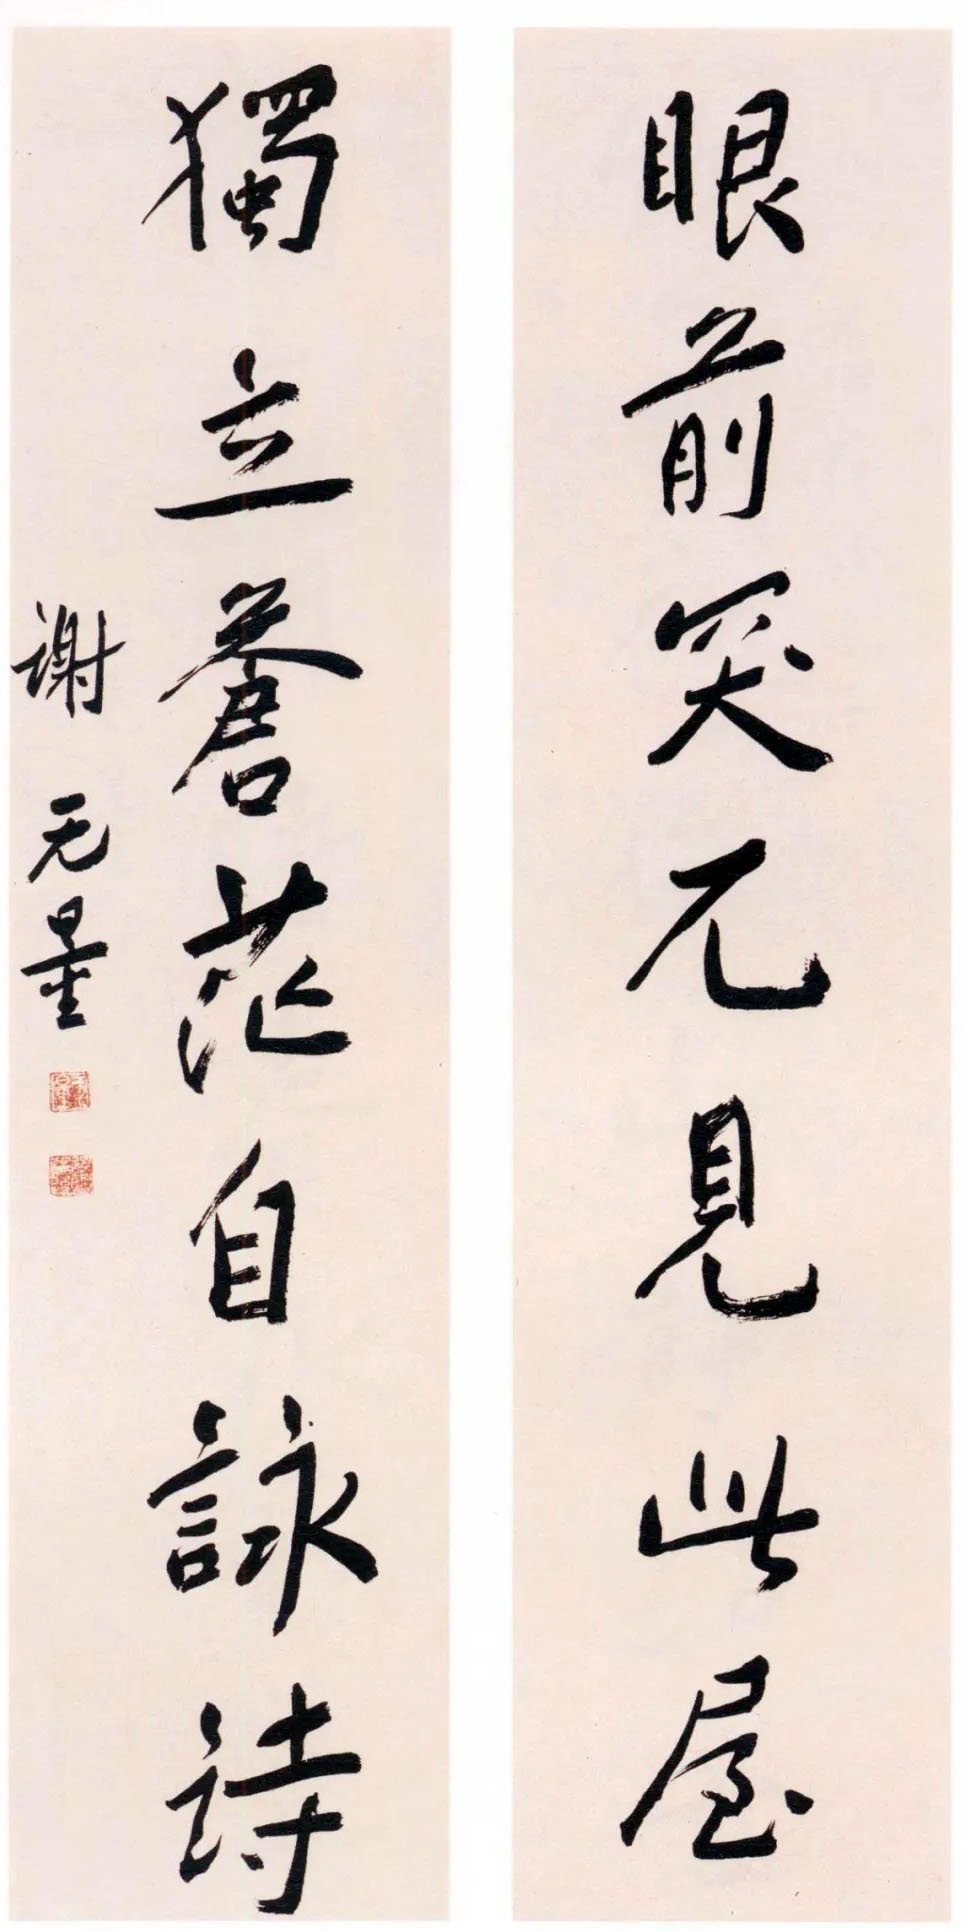 眼前突兀見此屋
獨立蒼茫自詠詩
謝无量